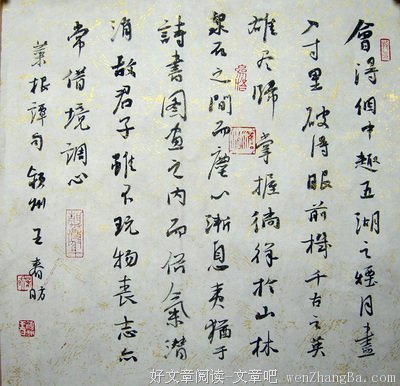 會得個中趣五湖之煙月盡
入寸里破得眼前機千古之英
雄尽歸掌握徜徉於山林
泉石之間而塵心漸息夷猶于
詩書圖画之内而俗氣潜
消故君子雖不玩物喪志亦
常借境調心
菜根譚句 州 王春
好文章阅读-文章吧 wenZhangBa.com